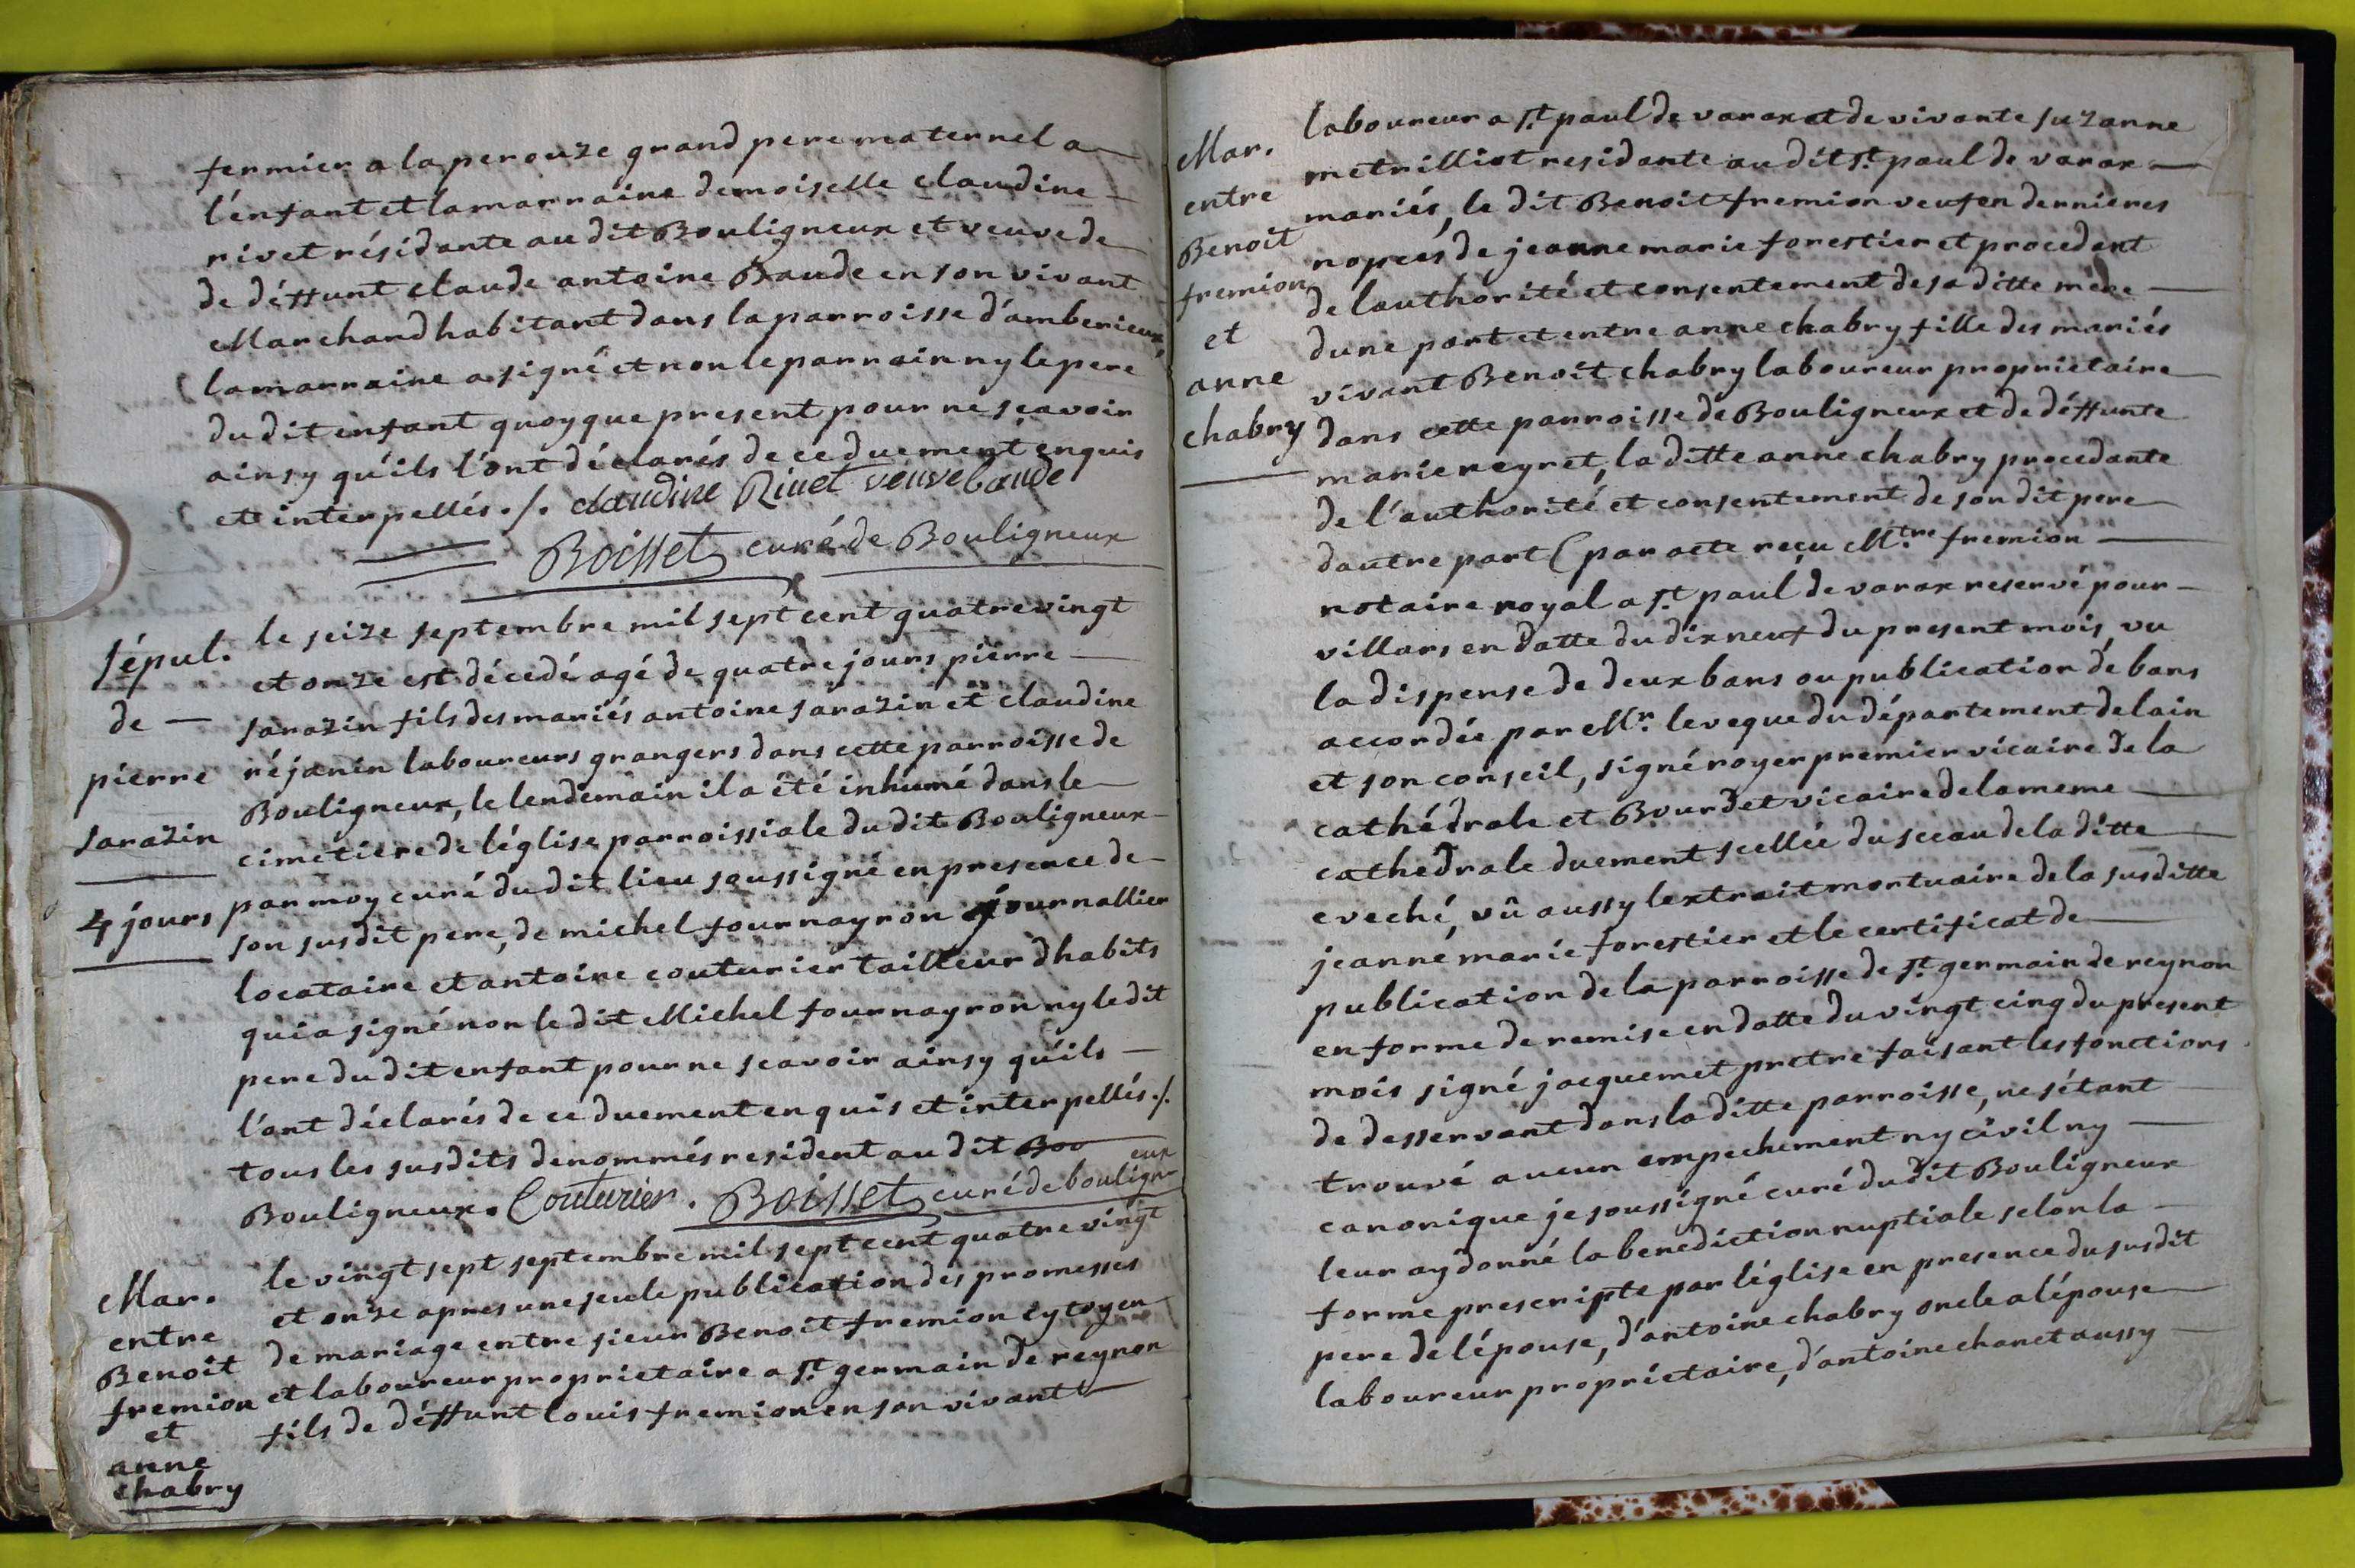 fermier a la perouze grand pere maternel a
l'enfant et la marraine demoiselle claudine
rivet résidante au dit Bouligneux et veuve de
de déffunt claude antoine Baude en son vivant
Marchand habitant dans la parroisse d'amberieux,
la marraine a signé et non le parrain ny le pere
du dit enfant quoyque present pour ne sçavoir
ainsy qu'ils l'ont déclarés de ce duement enquis
et interpellés ./. claudine Rivet veuve baude
Boisset curé de Bouligneux
Sépul.
de
pierre
sarazin
4 jours
le seize septembre mil sept cent quatre vingt
et onze est décedé agé de quatre jours pierre
sarazin fils des mariés antoine sarazin et claudine
réjanin laboureurs grangers dans cette parroisse de
Bouligneux, le lendemain il a été inhumé dans le
cimetiere de léglise parroissiale du dit Bouligneux
par moy curé du dit lieu soussigné en presence de
son susdit pere, de michel fournayron journallier
locataire et antoine couturier tailleur dhabits
qui a signé non le dit Michel fournayron ny le dit
pere du dit enfant pour ne scavoir ainsy qu'ils
l'ont déclarés de ce duement enquis et interpellés ./.
tous les susdits denommés resident au dit Bou
Bouligneux. Couturier. Boisset curé de bouligneux
Mar.
entre
Benoit
fremion
et
anne
chabry
le vingt sept septembre mil sept cent quatre vingt
et onze apres une seule publication des promesses
de mariage entre sieur Benoit fremion cytoyen
et laboureur proprietaire a st. germain de reynon
fils de déffunt louis fremion en son vivant
Mar.
entre
Benoit
fremion
et
anne
chabry
laboureur a st. paul de varax et de vivante suzanne
metrilliot residante au dit st. paul de varax
mariés, le dit Benoit fremion veuf en dernieres
nopces de jeanne marie forestier et procedent
de lauthorité et consentement de sa ditte mère
dune part et entre anne chabry fille des mariés
vivant Benoit chabry laboureur proprietaire
dans cette parroisse de Bouligneux et de déffunte
marie reyret, la ditte anne chabry procedante
de l'authorité et consentement de son dit pere
dautre part (par acte reçu Mtre fremion
notaire royal a st. paul de varax reservé pour
villars en datte du dix neuf du present mois, vu
la dispense de deux bans ou publication de bans
accordée par Mr. leveque du département de lain
et son conseil, signé royer premier vicaire de la
cathédrale et Bourdet vicaire de la meme
cathedrale duement scellée du sceau de la ditte
eveché, vû aussy lextrait mortuaire de la susditte
jeanne marie forestier et le certificat de
publication de la parroisse de st. germain de reynon
en forme de remise en datte du vingt cinq du present
mois signé jacquemet pretre faisant les fonctions
de desservant dans la ditte parroisse, ne s'étant
trouvé aucun empechement ny civil ny
canonique je soussigné curé du dit Bouligneux
leur ay donné la benediction nuptiale selon la
forme prescripte par léglise en presence du susdit
pere de lépouse, d'antoine chabry oncle a lépouse
laboureur propriétaire, d'antoine chanet aussy